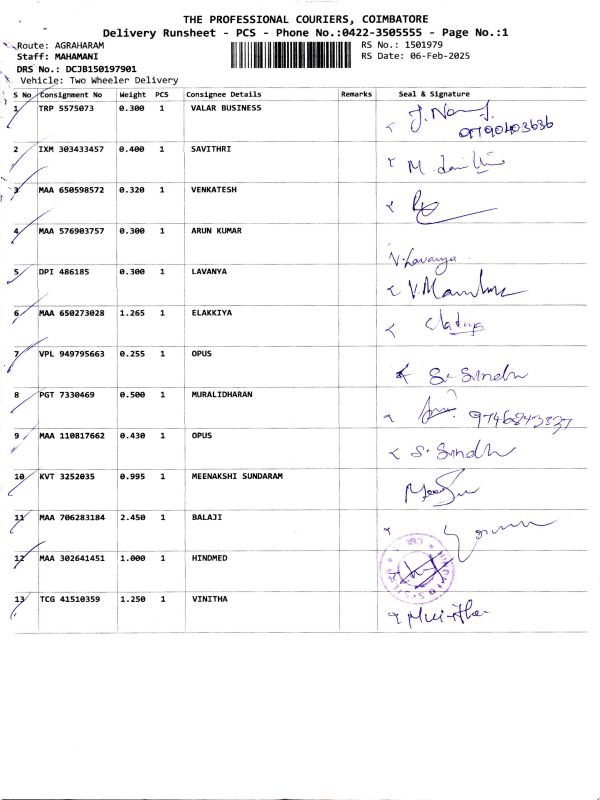 THE PROFESSIONAL COURIERS, COIMBATORE
Delivery Runsheet - PCS - Phone No.:0422-3505555 - Page No.:1
Route: AGRAHARAM RS No.: 1501979
Staff: MAHAMANI RS Date: 06-Feb-2025
DRS No.: DCJB150197901
Vehicle: Two Wheeler Delivery
S No Consignment No Weight PCS Consignee Details Remarks Seal & Signature
1 TRP 5575073 0.300 1 VALAR BUSINESS
9790403636
2 IXM 303433457 0.400 1 SAVITHRI
3 MAA 650598572 0.320 1 VENKATESH
4 MAA 576903757 0.300 1 ARUN KUMAR
V. Lavanya
5 DPI 486185 0.300 1 LAVANYA
6 MAA 650273028 1.265 1 ELAKKIYA
7 VPL 949795663 0.255 1 OPUS
S. Sindhu
8 PGT 7330469 0.500 1 MURALIDHARAN
9746843337
9 MAA 110817662 0.430 1 OPUS
S. Sindhu
10 KVT 3252035 0.995 1 MEENAKSHI SUNDARAM
11 MAA 706283184 2.450 1 BALAJI
12 MAA 302641451 1.000 1 HINDMED
13 TCG 41510359 1.250 1 VINITHA